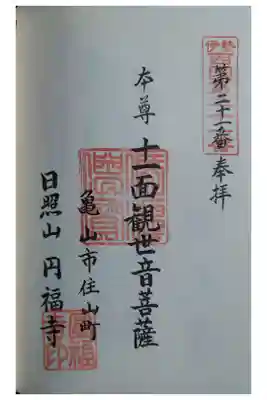 第二十一番 奉拝
本尊 十一面観世音菩薩
亀山市住山町
日照山 円福寺